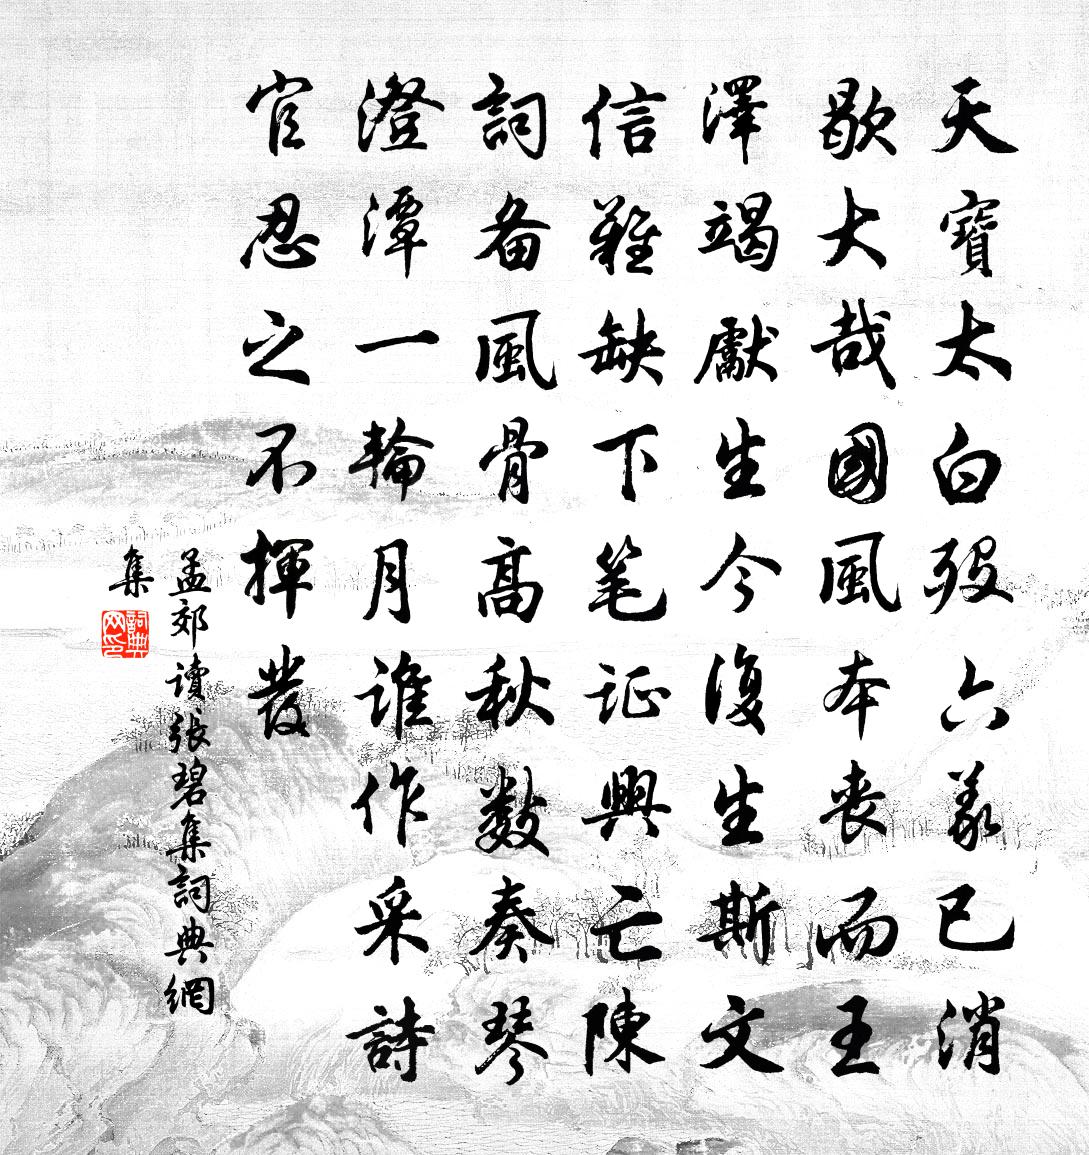 天寶太白歿六義已消
歇大哉國風本丧而王
澤竭獻生今復生斯文
信難缺下笔证興亡陳
詞备風骨高秋数奏琴
澄潭一輪月誰作采詩
官忍之不揮發
孟郊讀张碧集詞典網
集
詞典网印